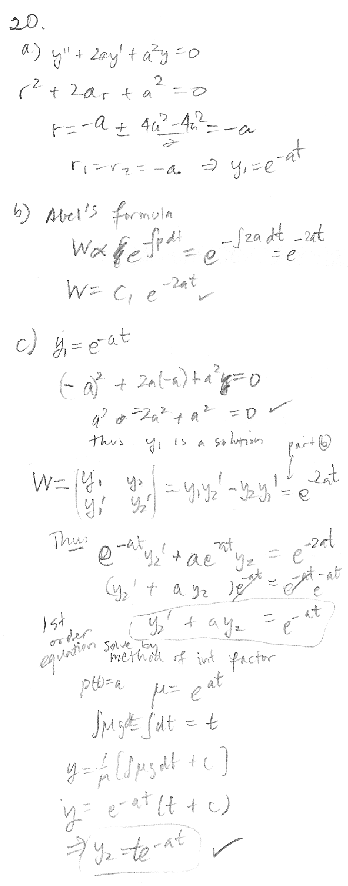 20.
a.) y'' + 2ay' + a²y = 0
r² + 2ar + a² = 0
r = -a ± 4a²-4a² / 2 = -a
r₁ = r₂ = -a ⇒ y₁ = e^-at
b) Abel's formula
W ∝ e^-∫pdt = e^-∫2adt = e^-2at
W = C₁ e^-2at ✓
c) y₁ = e^-at
(-a)² + 2a(-a) + a² = 0
a² - 2a² + a² = 0 ✓
thus y₁ is a solution
part (b)
W = |y₁ y₂ y₁' y₂'| = y₁y₂' - y₂y₁' = e^-2at
Thus: e^-at y₂' + ae^-at y₂ = e^-2at
(y₂' + a y₂) e^-at = e^-at-at
y₂' + a y₂ = e^-at
1st order equation solve by method of int factor
p(t) = a μ = e^at
∫μg dt = ∫dt = t
y = 1/μ [∫μg dt + c]
y = e^-at (t + c)
⇒ y₂ = te^-at ✓